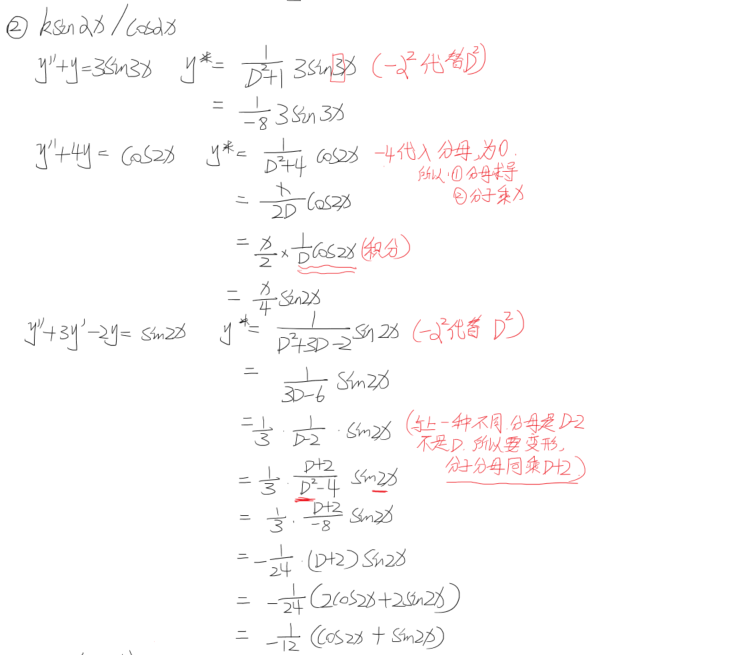 ② ksin2x/cos2x
y''+y=3sin3x y*= 1/(D²+1) 3sin3x (-2²代替D²)
= 1/(-8) 3sin3x
y''+4y= cos2x y*= 1/(D²+4) cos2x -4代入分母,为0.
所以:①分母求导
= x/(2D) cos2x ②分子乘x
= x/2 × 1/D cos2x (积分)
= x/4 sin2x
y''+3y'-2y= sin2x y*= 1/(D²+3D-2) sin2x (-2²代替 D²)
= 1/(3D-6) sin2x
= 1/3 · 1/(D-2) · sin2x (与上一种不同.分母是D-2
不是D.所以要变形,
分子分母同乘D+2)
= 1/3 · (D+2)/(D²-4) sin2x
= 1/3 · (D+2)/(-8) sin2x
= -1/24 · (D+2) sin2x
= -1/24 (2cos2x+2sin2x)
= 1/(-12) (cos2x + sin2x)